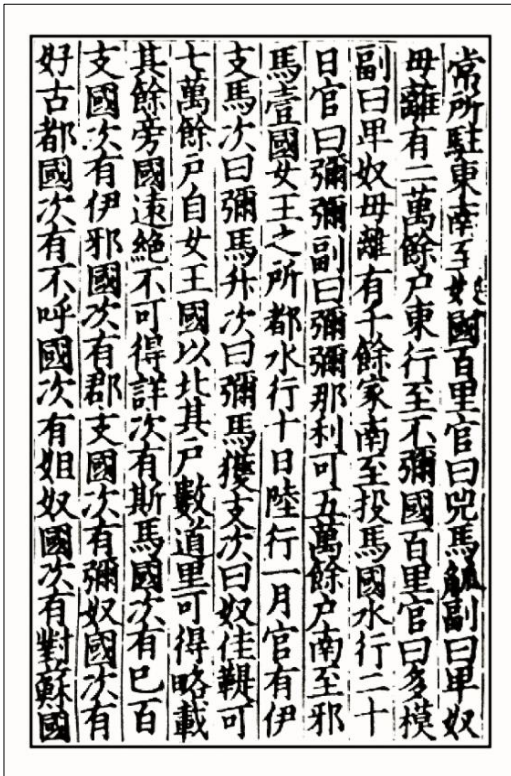 常所駐東南至奴國百里官曰兕馬觚副曰卑奴
毋離有二萬餘户東行至不彌國百里官曰多模
副曰卑奴毋離有千餘家南至投馬國水行二十
日官曰彌彌副曰彌彌那利可五萬餘户南至邪
馬壹國女王之所都水行十日陸行一月官有伊
支馬次曰彌馬升次曰彌馬獲支次曰奴佳鞮可
七萬餘户自女王國以北其户數道里可得略載
其餘旁國遠絶不可得詳次有斯馬國次有已百
支國次有伊邪國次有郡支國次有彌奴國次有
好古都國次有不呼國次有姐奴國次有對蘇國